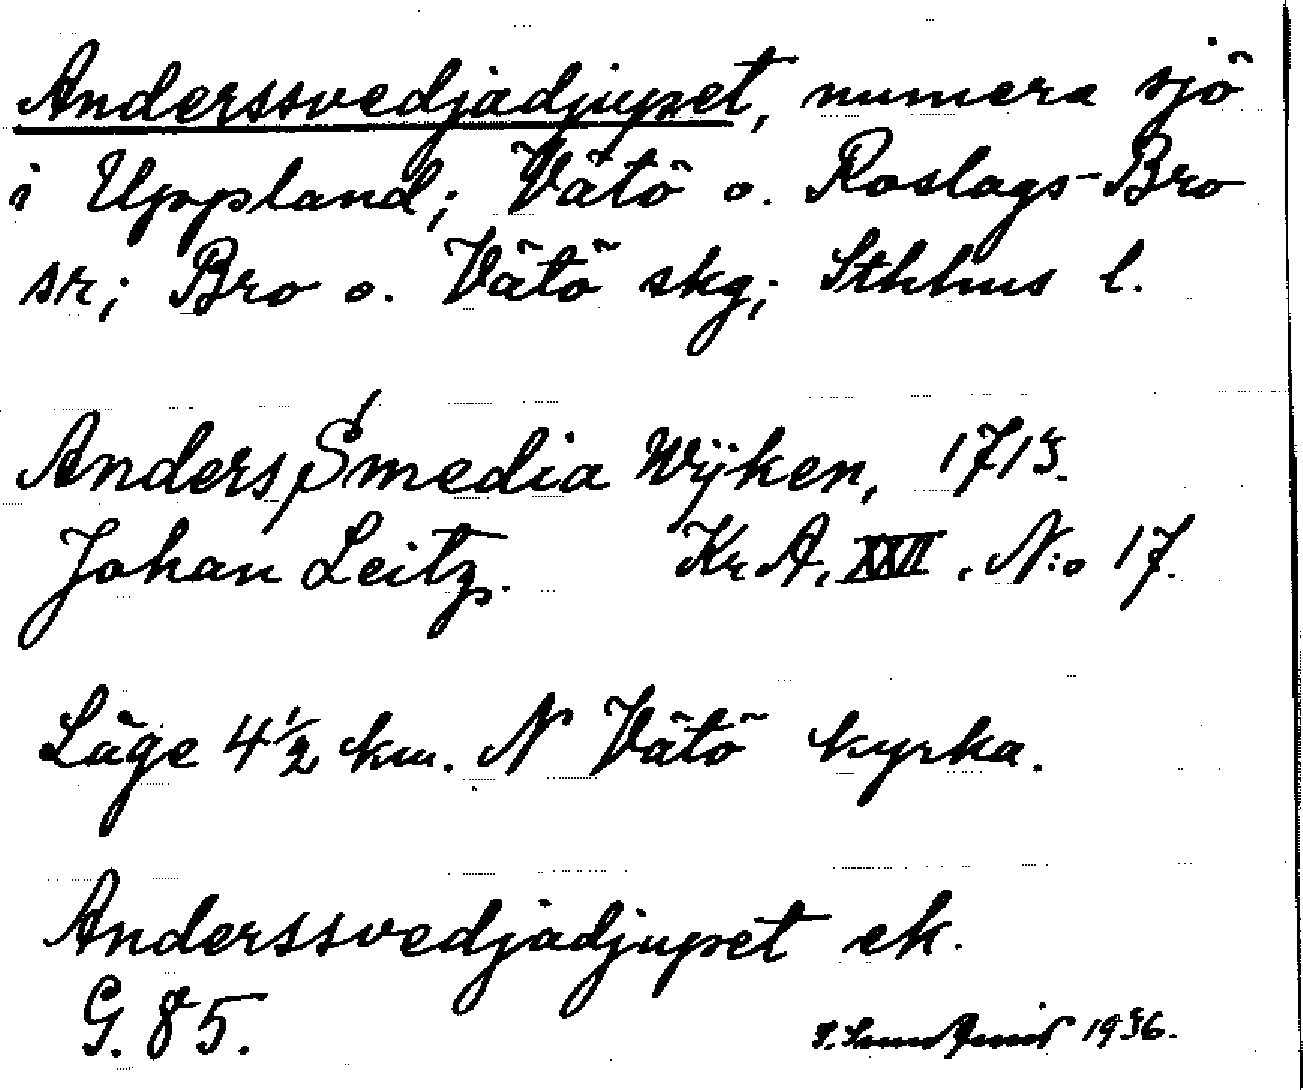 Anderssvedjadjupet, numera sjö
i Uppland; Vätö o. Roslags-Bro
sr; Bro o. Vätö skg; Sthlms l.
Anders Smedia Wÿken, 1715.
Johan Leitz. Kr. A. XXII. N:o 17.
Läge 4½ km. N Vätö kyrka.
Anderssvedjadjupet ek.
G. 85.
1936.